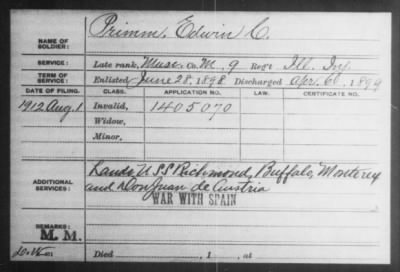 NAME OF SOLDIER: Primm, Edwin C.
SERVICE: Late rank, Musc. Co. M, 9 Reg't Ill. Inf.
TERM OF SERVICE: Enlisted June 28, 1898 Discharged Apr. 60, 1899
DATE OF FILING. CLASS. APPLICATION NO. LAW. CERTIFICATE NO.
1912 Aug. 1 Invalid, 1405070
Widow,
Minor,
ADDITIONAL SERVICES: Lands. U S S Richmond, Buffalo, Monterey
and Don Juan de Austria
WAR WITH SPAIN
REMARKS:
M. M.
Died , 1 , at